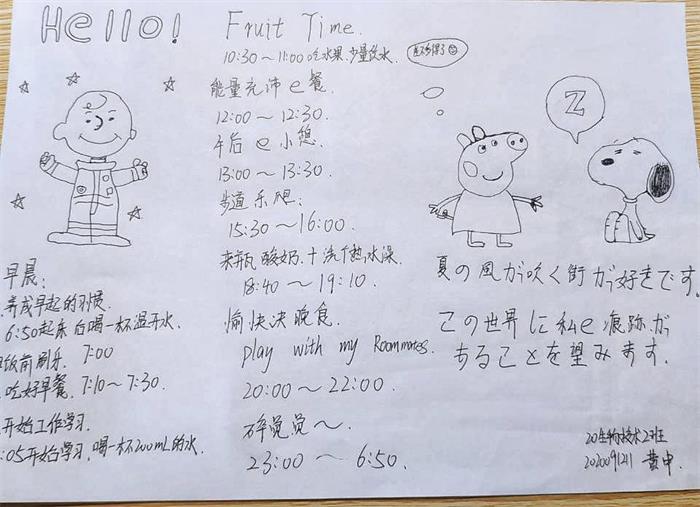 Hello!
Fruit Time.
10:30~11:00吃水果.少量饮水.
能量充沛e餐.
12:00~12:30.
午后e小憩.
13:00~13:30.
步道乐跑.
15:30~16:00.
来瓶酸奶.+洗个热水澡.
18:40~19:10.
愉快决晚食.
play with my Roommates.
20:00~22:00.
碎觉觉~.
23:00~6:50.
Z
早晨:
养成早起的习惯.
6:50起床后喝一杯温开水.
饭前刷牙. 7:00
吃好早餐. 7:10~7:30.
开始工作学习.
:05开始学习.喝一杯200mL的水.
夏の風が吹く街が好きです.
この世界に私e痕跡が
あることを望みます.
20生物技术2班
2020091211 黄申